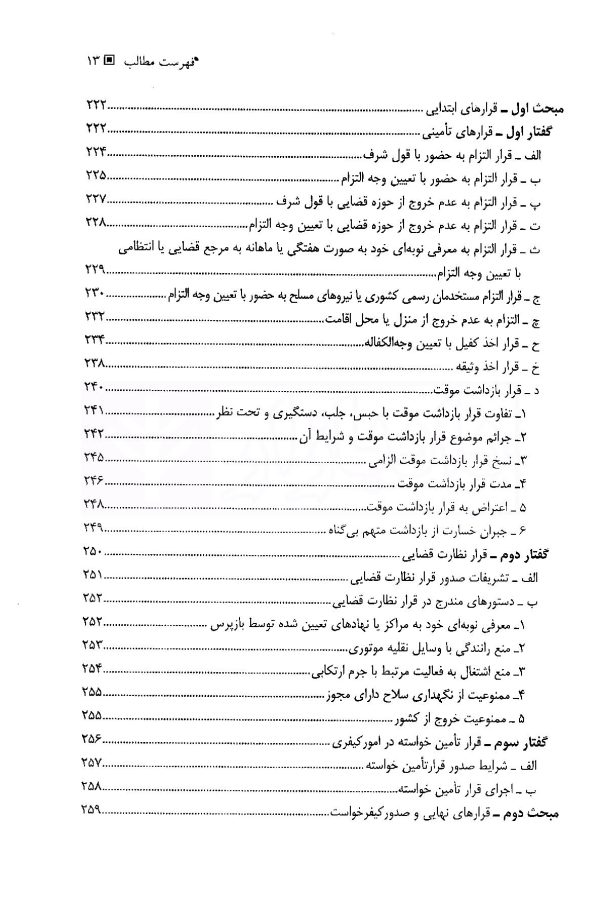 فهرست مطالب ▣ ۱۳
مبحث اول ـ قرارهای ابتدایی ........ ۲۲۲
گفتار اول ـ قرارهای تأمینی ........ ۲۲۲
الف ـ قرار التزام به حضور با قول شرف ........ ۲۲۴
ب ـ قرار التزام به حضور با تعیین وجه التزام ........ ۲۲۵
پ ـ قرار التزام به عدم خروج از حوزه قضایی با قول شرف ........ ۲۲۷
ت ـ قرار التزام به عدم خروج از حوزه قضایی با تعیین وجه التزام ........ ۲۲۸
ث ـ قرار التزام به معرفی نوبه‌ای خود به صورت هفتگی یا ماهانه به مرجع قضایی یا انتظامی
با تعیین وجه التزام ........ ۲۲۹
ج ـ قرار التزام مستخدمان رسمی کشوری یا نیروهای مسلح به حضور با تعیین وجه التزام ........ ۲۳۰
چ ـ التزام به عدم خروج از منزل یا محل اقامت ........ ۲۳۲
ح ـ قرار اخذ کفیل با تعیین وجه‌الکفاله ........ ۲۳۴
خ ـ قرار اخذ وثیقه ........ ۲۳۸
د ـ قرار بازداشت موقت ........ ۲۴۰
۱ـ تفاوت قرار بازداشت موقت با حبس، جلب، دستگیری و تحت نظر ........ ۲۴۱
۲ـ جرائم موضوع قرار بازداشت موقت و شرایط آن ........ ۲۴۲
۳ـ نسخ قرار بازداشت موقت الزامی ........ ۲۴۵
۴ـ مدت قرار بازداشت موقت ........ ۲۴۶
۵ ـ اعتراض به قرار بازداشت موقت ........ ۲۴۸
۶ ـ جبران خسارت از بازداشت متهم بی‌گناه ........ ۲۴۹
گفتار دوم ـ قرار نظارت قضایی ........ ۲۵۰
الف ـ تشریفات صدور قرار نظارت قضایی ........ ۲۵۱
ب ـ دستورهای مندرج در قرار نظارت قضایی ........ ۲۵۲
۱ـ معرفی نوبه‌ای خود به مراکز یا نهادهای تعیین شده توسط بازپرس ........ ۲۵۲
۲ـ منع رانندگی با وسایل نقلیه موتوری ........ ۲۵۳
۳ـ منع اشتغال به فعالیت مرتبط با جرم ارتکابی ........ ۲۵۴
۴ـ ممنوعیت از نگهداری سلاح دارای مجوز ........ ۲۵۵
۵ ـ ممنوعیت خروج از کشور ........ ۲۵۵
گفتار سوم ـ قرار تأمین خواسته در امورکیفری ........ ۲۵۶
الف ـ شرایط صدور قرارتأمین خواسته ........ ۲۵۷
ب ـ اجرای قرار تأمین خواسته ........ ۲۵۸
مبحث دوم ـ قرارهای نهایی و صدورکیفرخواست ........ ۲۵۹